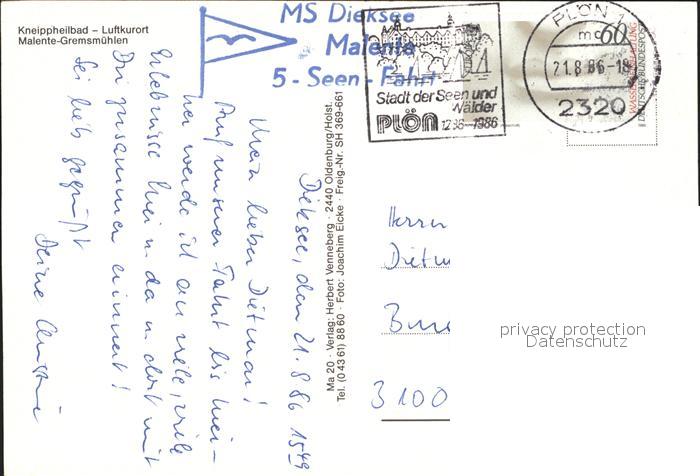 Kneippheilbad – Luftkurort
Malente-Gremsmühlen
MS Dieksee
Malente
5-Seen-Fahrt
Stadt der Seen und
Wälder
PLÖN 1236-1986
PLÖN 1
mc
21.8.86-18
2320
60
DEUTSCHE BUNDESPOST
Dieksee, den 21.8.86 1549
Mein lieber Dietmar!
Auf unserer Fahrt bis hier-
her werde ich an viele, viele
Erlebnisse hier u. da u. dort mit
Dir zusammen erinnert!
Sei lieb gegrüßt
Deine
Ma 20 · Verlag: Herbert Venneberg · 2440 Oldenburg/Holst.
Tel. (0 43 61) 88 60 · Foto: Joachim Eicke · Freig.-Nr. SH 369-661
Herrn
Dietm
3100
privacy protection
Datenschutz